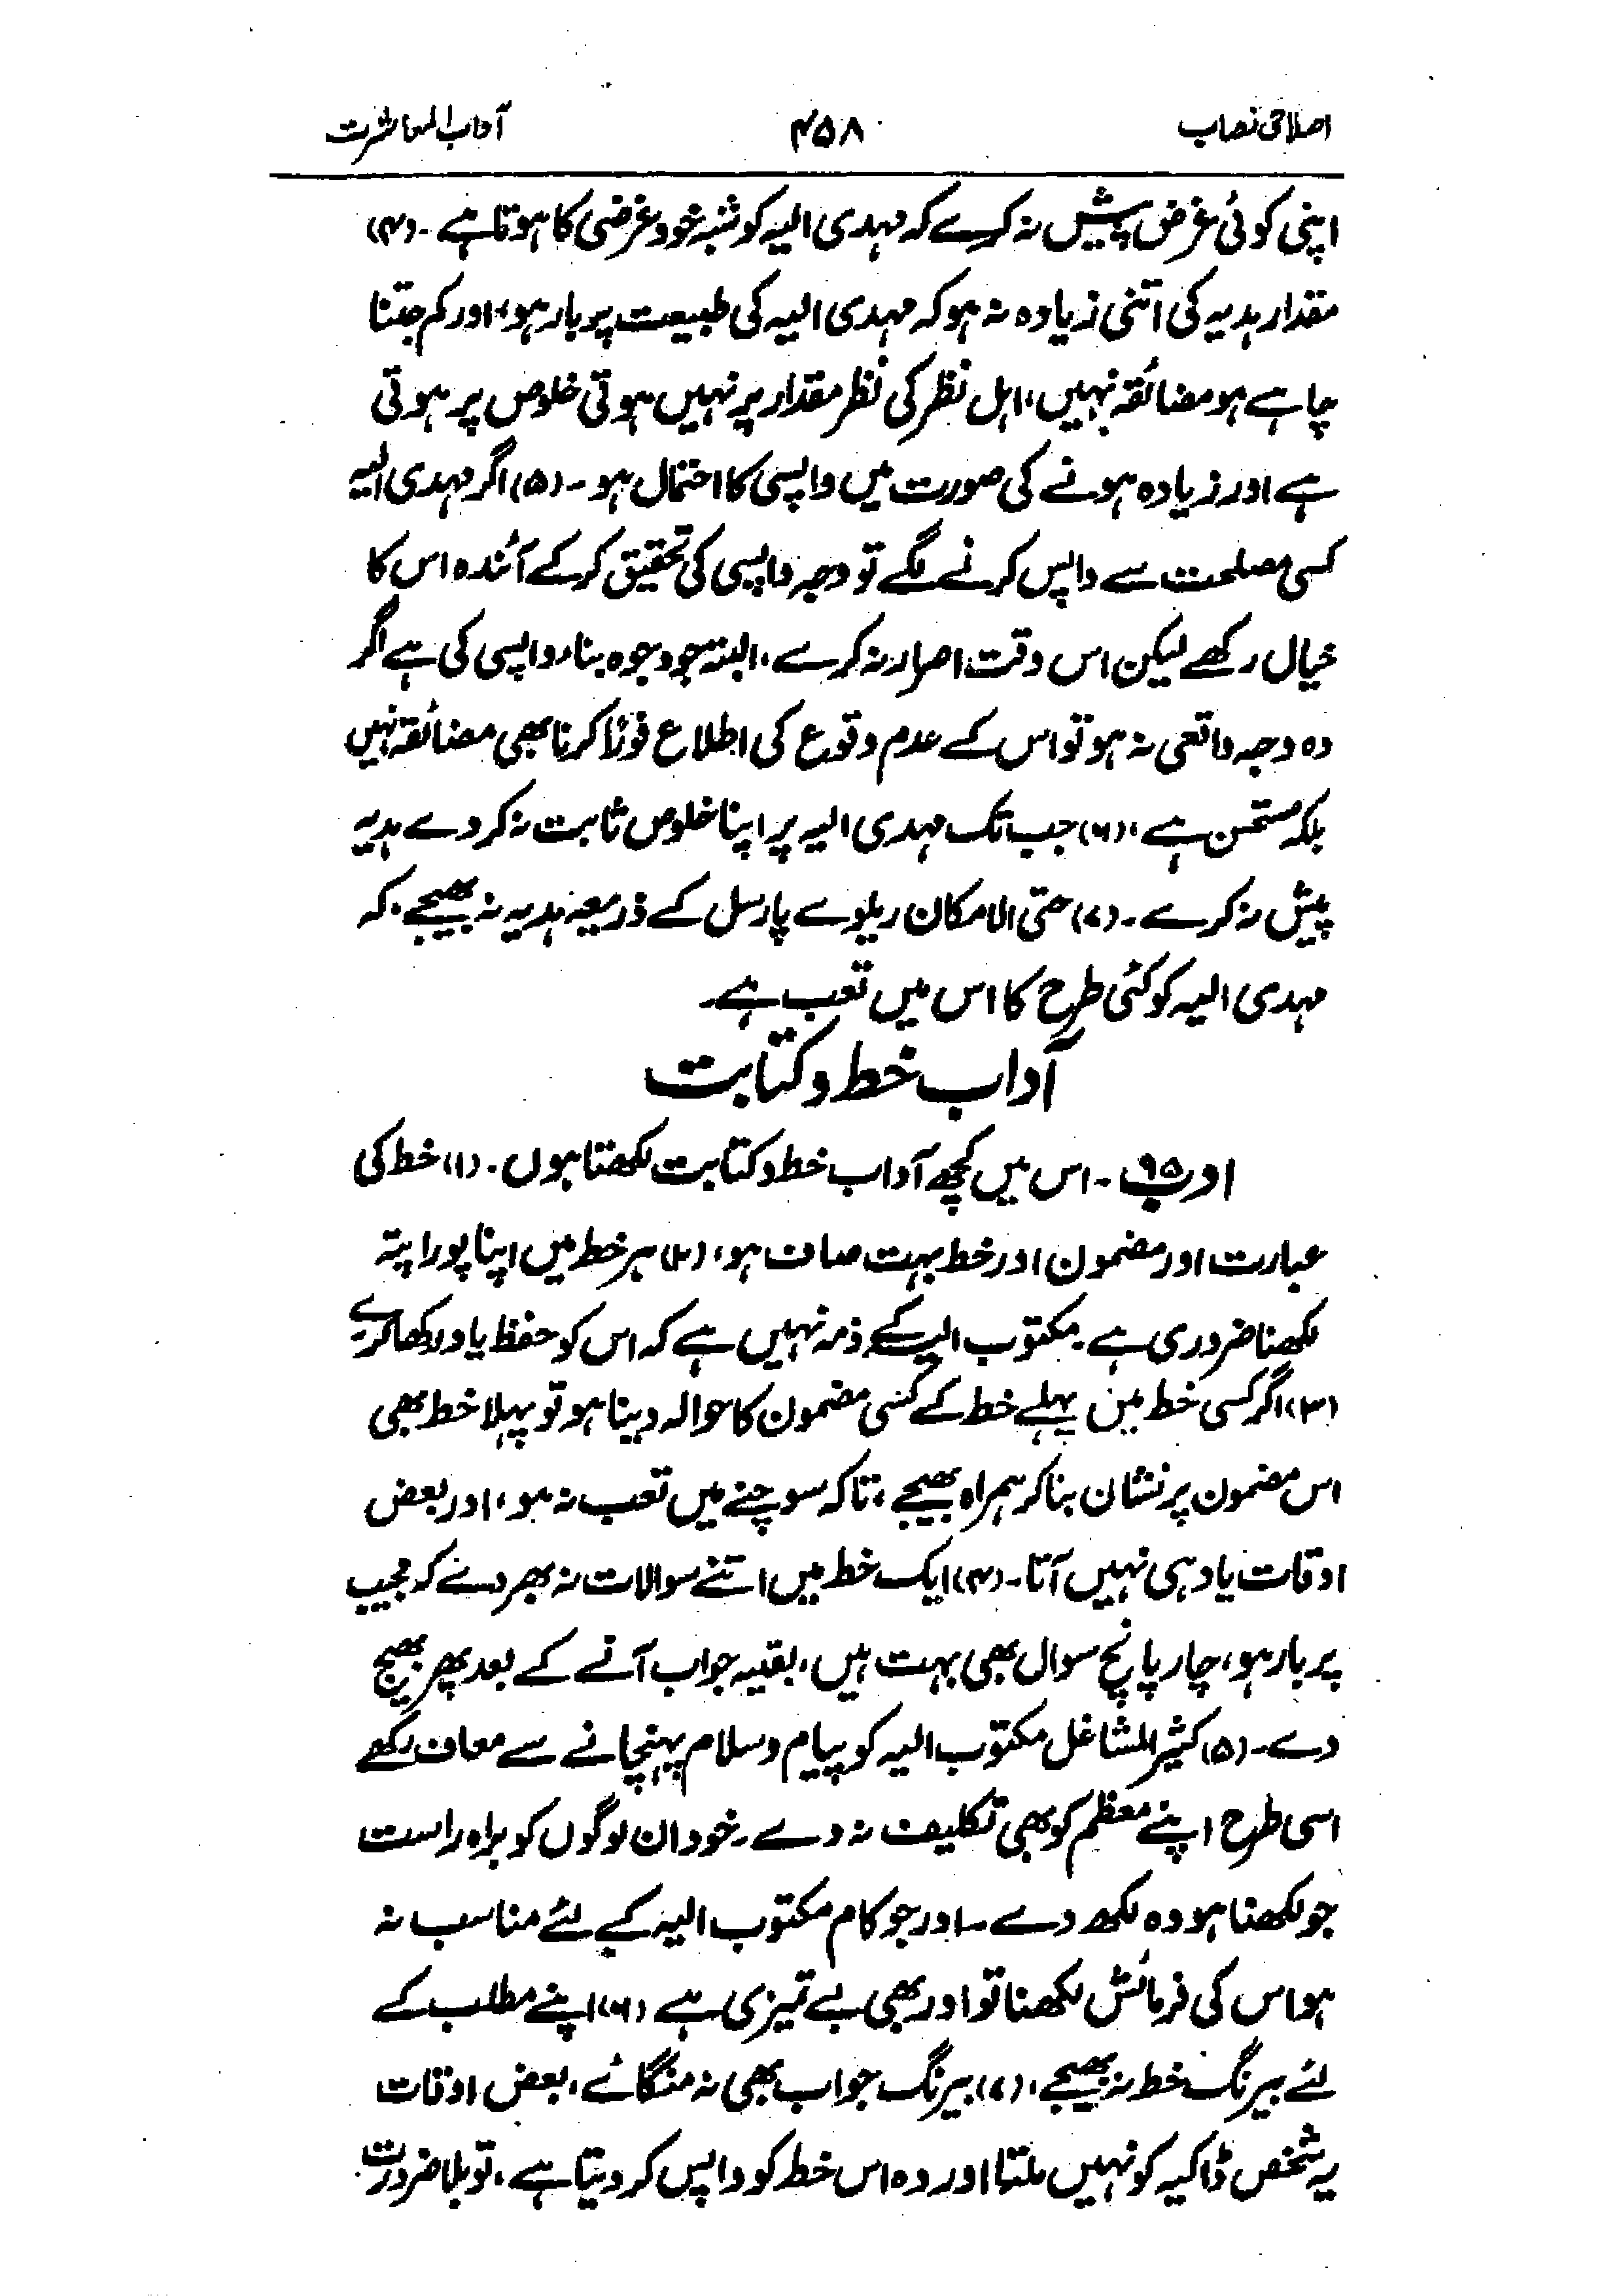 اصلاحی نصاب ۴۵۸ آداب المعاشرت
اپنی کوئی غرض پیش نہ کرے کہ مہدی الیہ کو شبہ خود غرضی کا ہوتا ہے ۔ (۴)
مقدار ہدیہ کی اتنی زیادہ نہ ہو کہ مہدی الیہ کی طبیعت پر بار ہو، اور کم جتنا
چاہے ہو مضائقہ نہیں، اہل نظر کی نظر مقدار پر نہیں ہوتی خلوص پر ہوتی
ہے اور زیادہ ہونے کی صورت میں واپسی کا احتمال ہو ۔ (۵) اگر مہدی الیہ
کسی مصلحت سے واپس کرنے لگے تو وجہ واپسی کی تحقیق کرکے آئندہ اس کا
خیال رکھے لیکن اس وقت اصرار نہ کرے، البتہ جو وجوہ بناء واپسی کی ہے اگر
وہ وجہ واقعی نہ ہو تو اس کے عدم وقوع کی اطلاع فوراً کرنا بھی مضائقہ نہیں
بلکہ مستحسن ہے، (۶) جب تک مہدی الیہ پر اپنا خلوص ثابت نہ کر دے ہدیہ
پیش نہ کرے ۔ (۷) حتی الامکان ریلوے پارسل کے ذریعہ ہدیہ نہ بھیجے، کہ
مہدی الیہ کو کئی طرح کا اس میں تعب ہے۔
آداب خط و کتابت
ادب ۹۵ ۔ اس میں کچھ آداب خط و کتابت لکھتا ہوں ۔ (۱) خط کی
عبارت اور مضمون اور خط بہت صاف ہو، (۲) ہر خط میں اپنا پورا پتہ
لکھنا ضروری ہے ۔ مکتوب الیہ کے ذمہ نہیں ہے کہ اس کو حفظ یاد رکھا کرے
(۳) اگر کسی خط میں پہلے خط کے کسی مضمون کا حوالہ دینا ہو تو پہلا خط بھی
اس مضمون پر نشان بنا کر ہمراہ بھیجے، تاکہ سوچنے میں تعب نہ ہو، اور بعض
اوقات یاد ہی نہیں آتا ۔ (۴) ایک خط میں اتنے سوالات نہ بھر دے کہ مجیب
پر بار ہو، چار پانچ سوال بھی بہت ہیں، بقیہ جواب آنے کے بعد پھر بھیج
دے ۔ (۵) کثیر المشاغل مکتوب الیہ کو پیام و سلام پہنچانے سے معاف رکھے
اسی طرح اپنے معظم کو بھی تکلیف نہ دے ۔ خود ان لوگوں کو براہ راست
جو لکھنا ہو وہ لکھ دے ۔ اور جو کام مکتوب الیہ کے لئے مناسب نہ
ہو اس کی فرمائش لکھنا تو اور بھی بے تمیزی ہے (۶) اپنے مطلب کے
لئے بیرنگ خط نہ بھیجے، (۷) بیرنگ جواب بھی نہ منگائے، بعض اوقات
یہ شخص ڈاکیہ کو نہیں ملتا اور وہ اس خط کو واپس کر دیتا ہے، تو بلا ضرورت